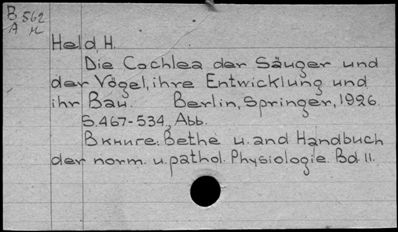 B 562
A н
Held, H.
Die Cochlea der Säuger und
der Vögel, ihre Entwicklung und
ihr Bau. Berlin, Springer, 1926.
S. 467-534, Abb.
В книге: Bethe u. and Handbuch
der norm. u. pathol. Physiologie. Bd 11.